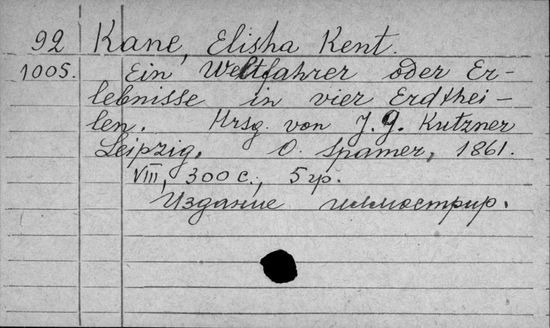 92 Kane, Elisha Kent.
1005. Ein Weltfahrer oder Er-
lebnisse in vier Erdthei-
len. Hrsg. von J. G. Kutzner
Leipzig. O. Spamer, 1861.
VIII, 300 с., 5 гр.
Издание иллюстрир.